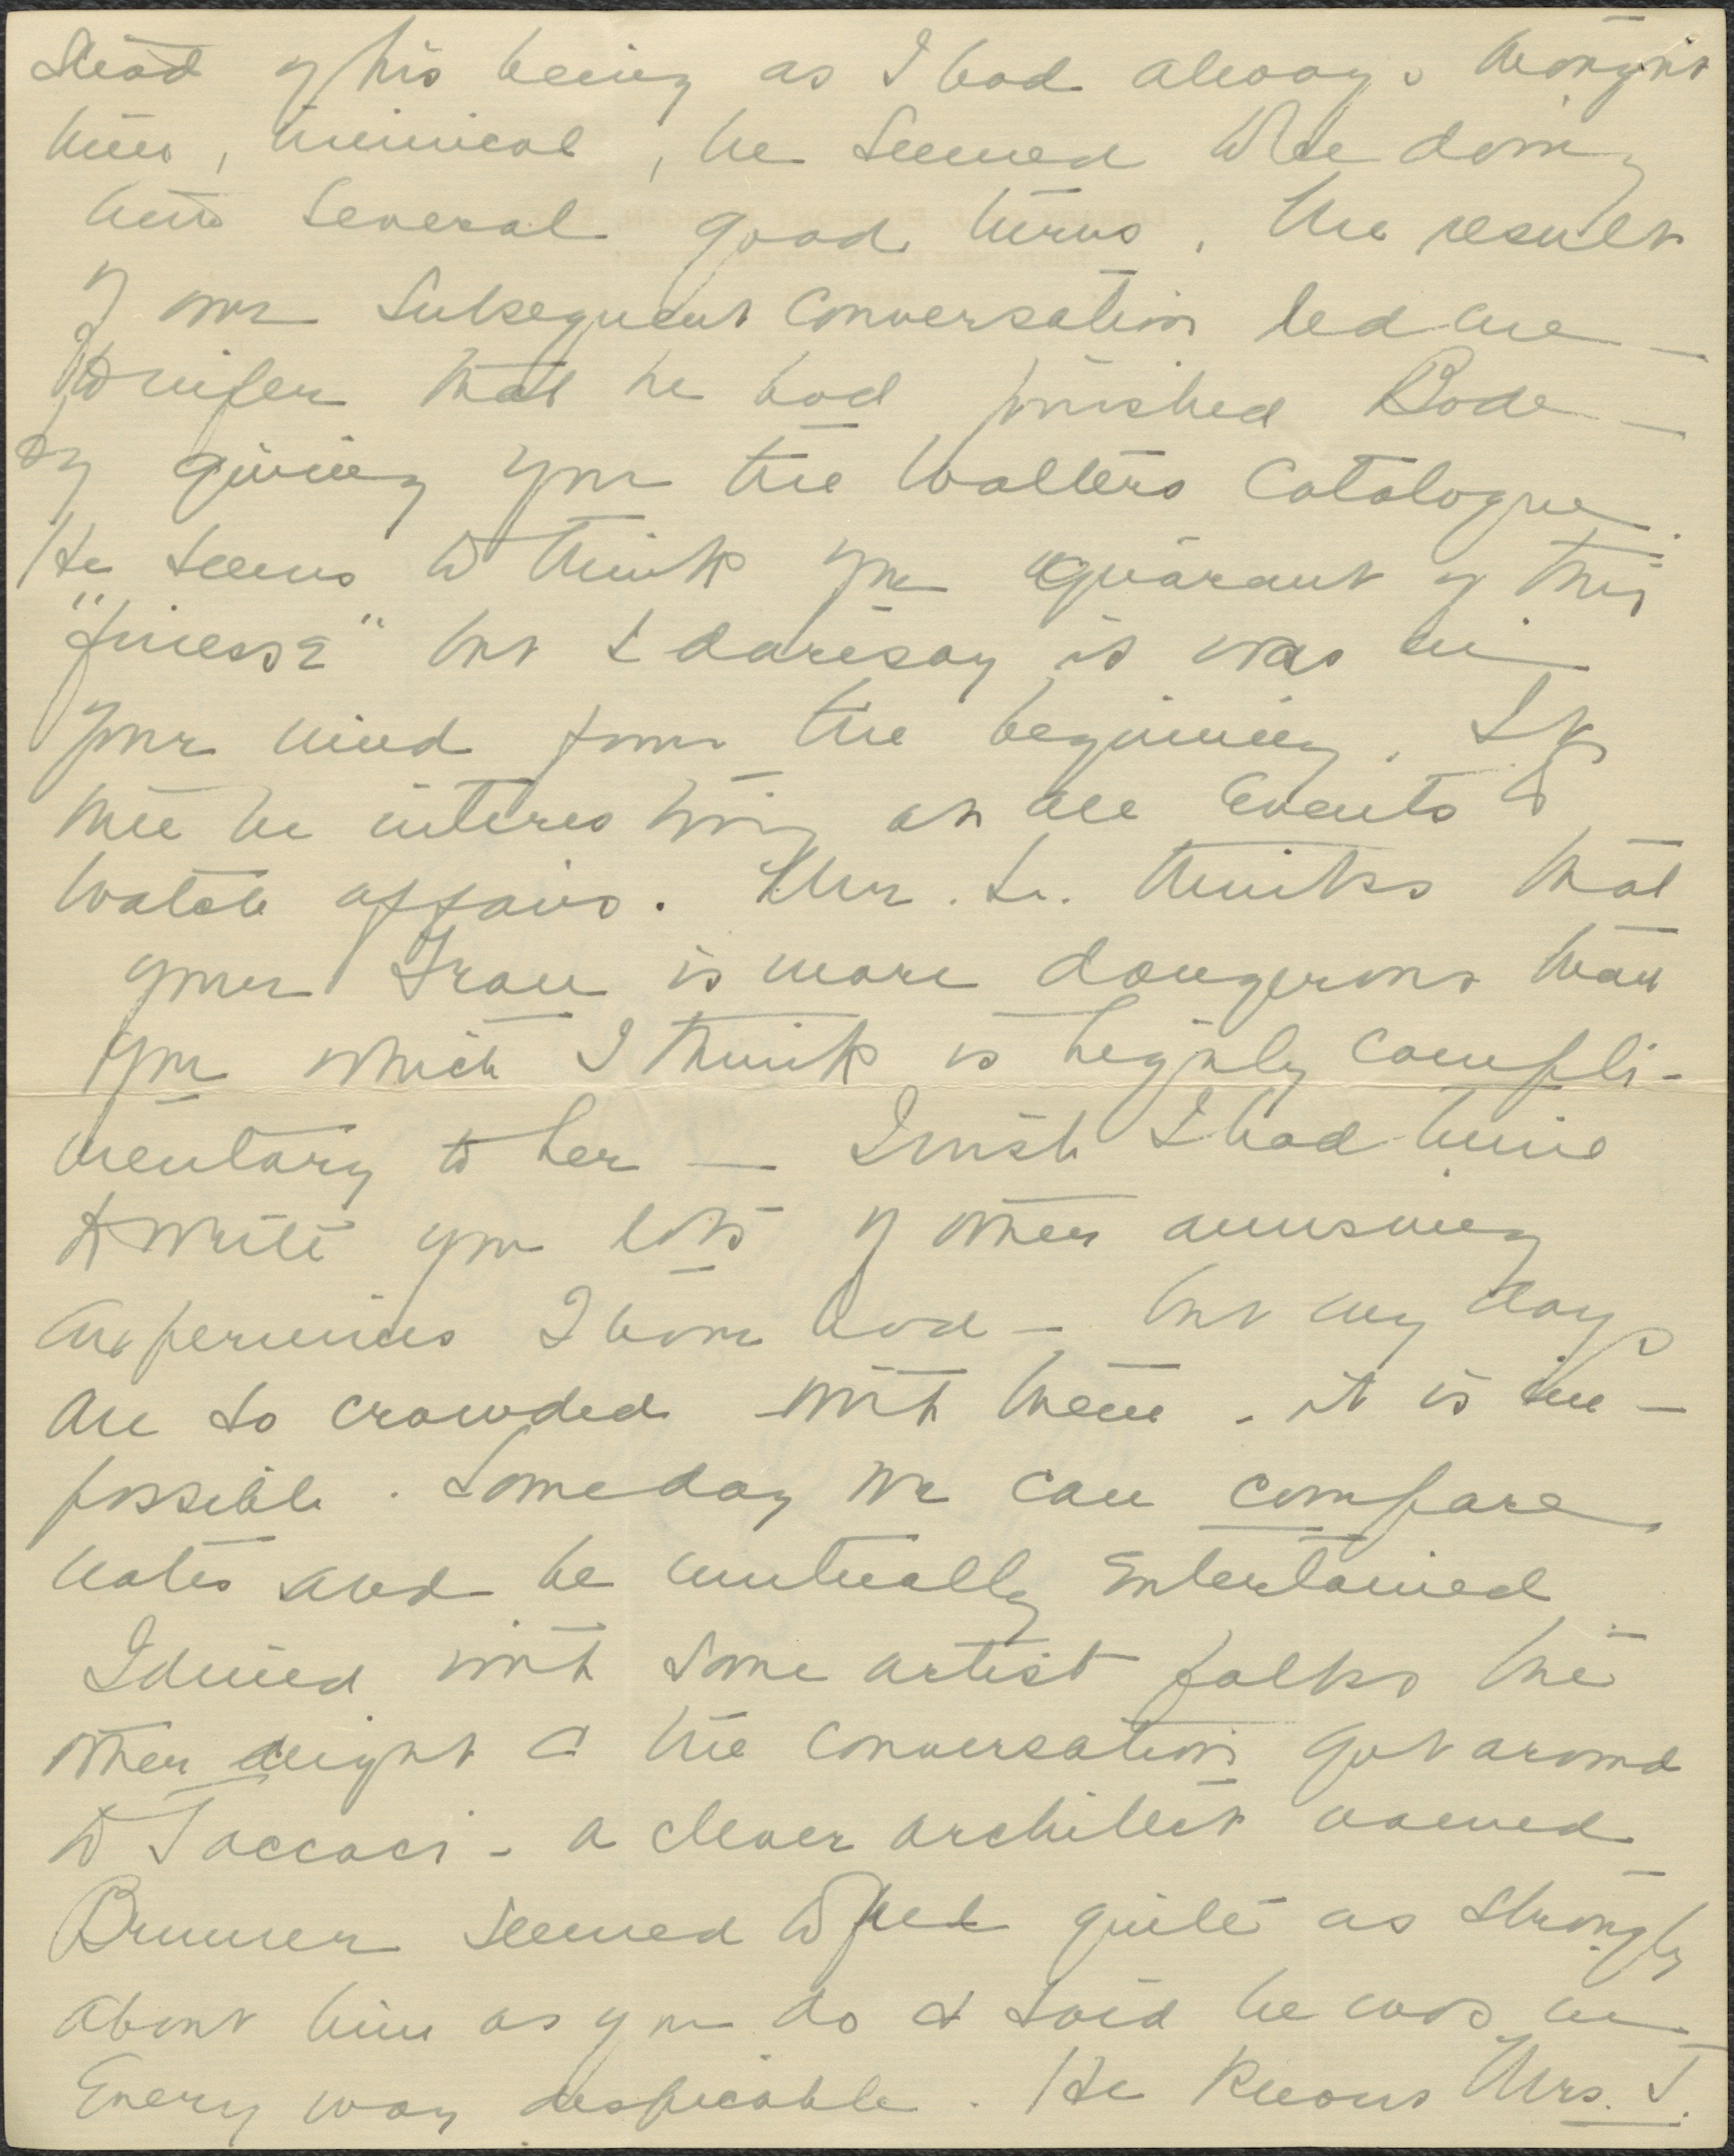 stead of his being as I had always thought
him, inimical, he seemed to be doing
him several good turns. The result
of our subsequent conversation led me
to infer that he had punished Bode
by giving you the Walters Catalogue.
He seems to think you ignorant of this
"finesse" but I daresay it was in
your mind from the beginning. It
will be interesting at all events to
watch affairs. Mr. L. thinks that
your Frau is more dangerous than
you which I think is highly compli-
mentary to her — I wish I had time
to write you lots of other amusing
experiences I have had — but my days
are so crowded with them - it is im-
possible. Someday we can compare
notes and be mutually entertained
I dined with some artist folks the
other night & the conversation got around
to Jaccaci - a clever architect named
Brunner seemed to feel quite as strongly
about him as you do & said he was in
every way despicable. He knows Mrs. J.